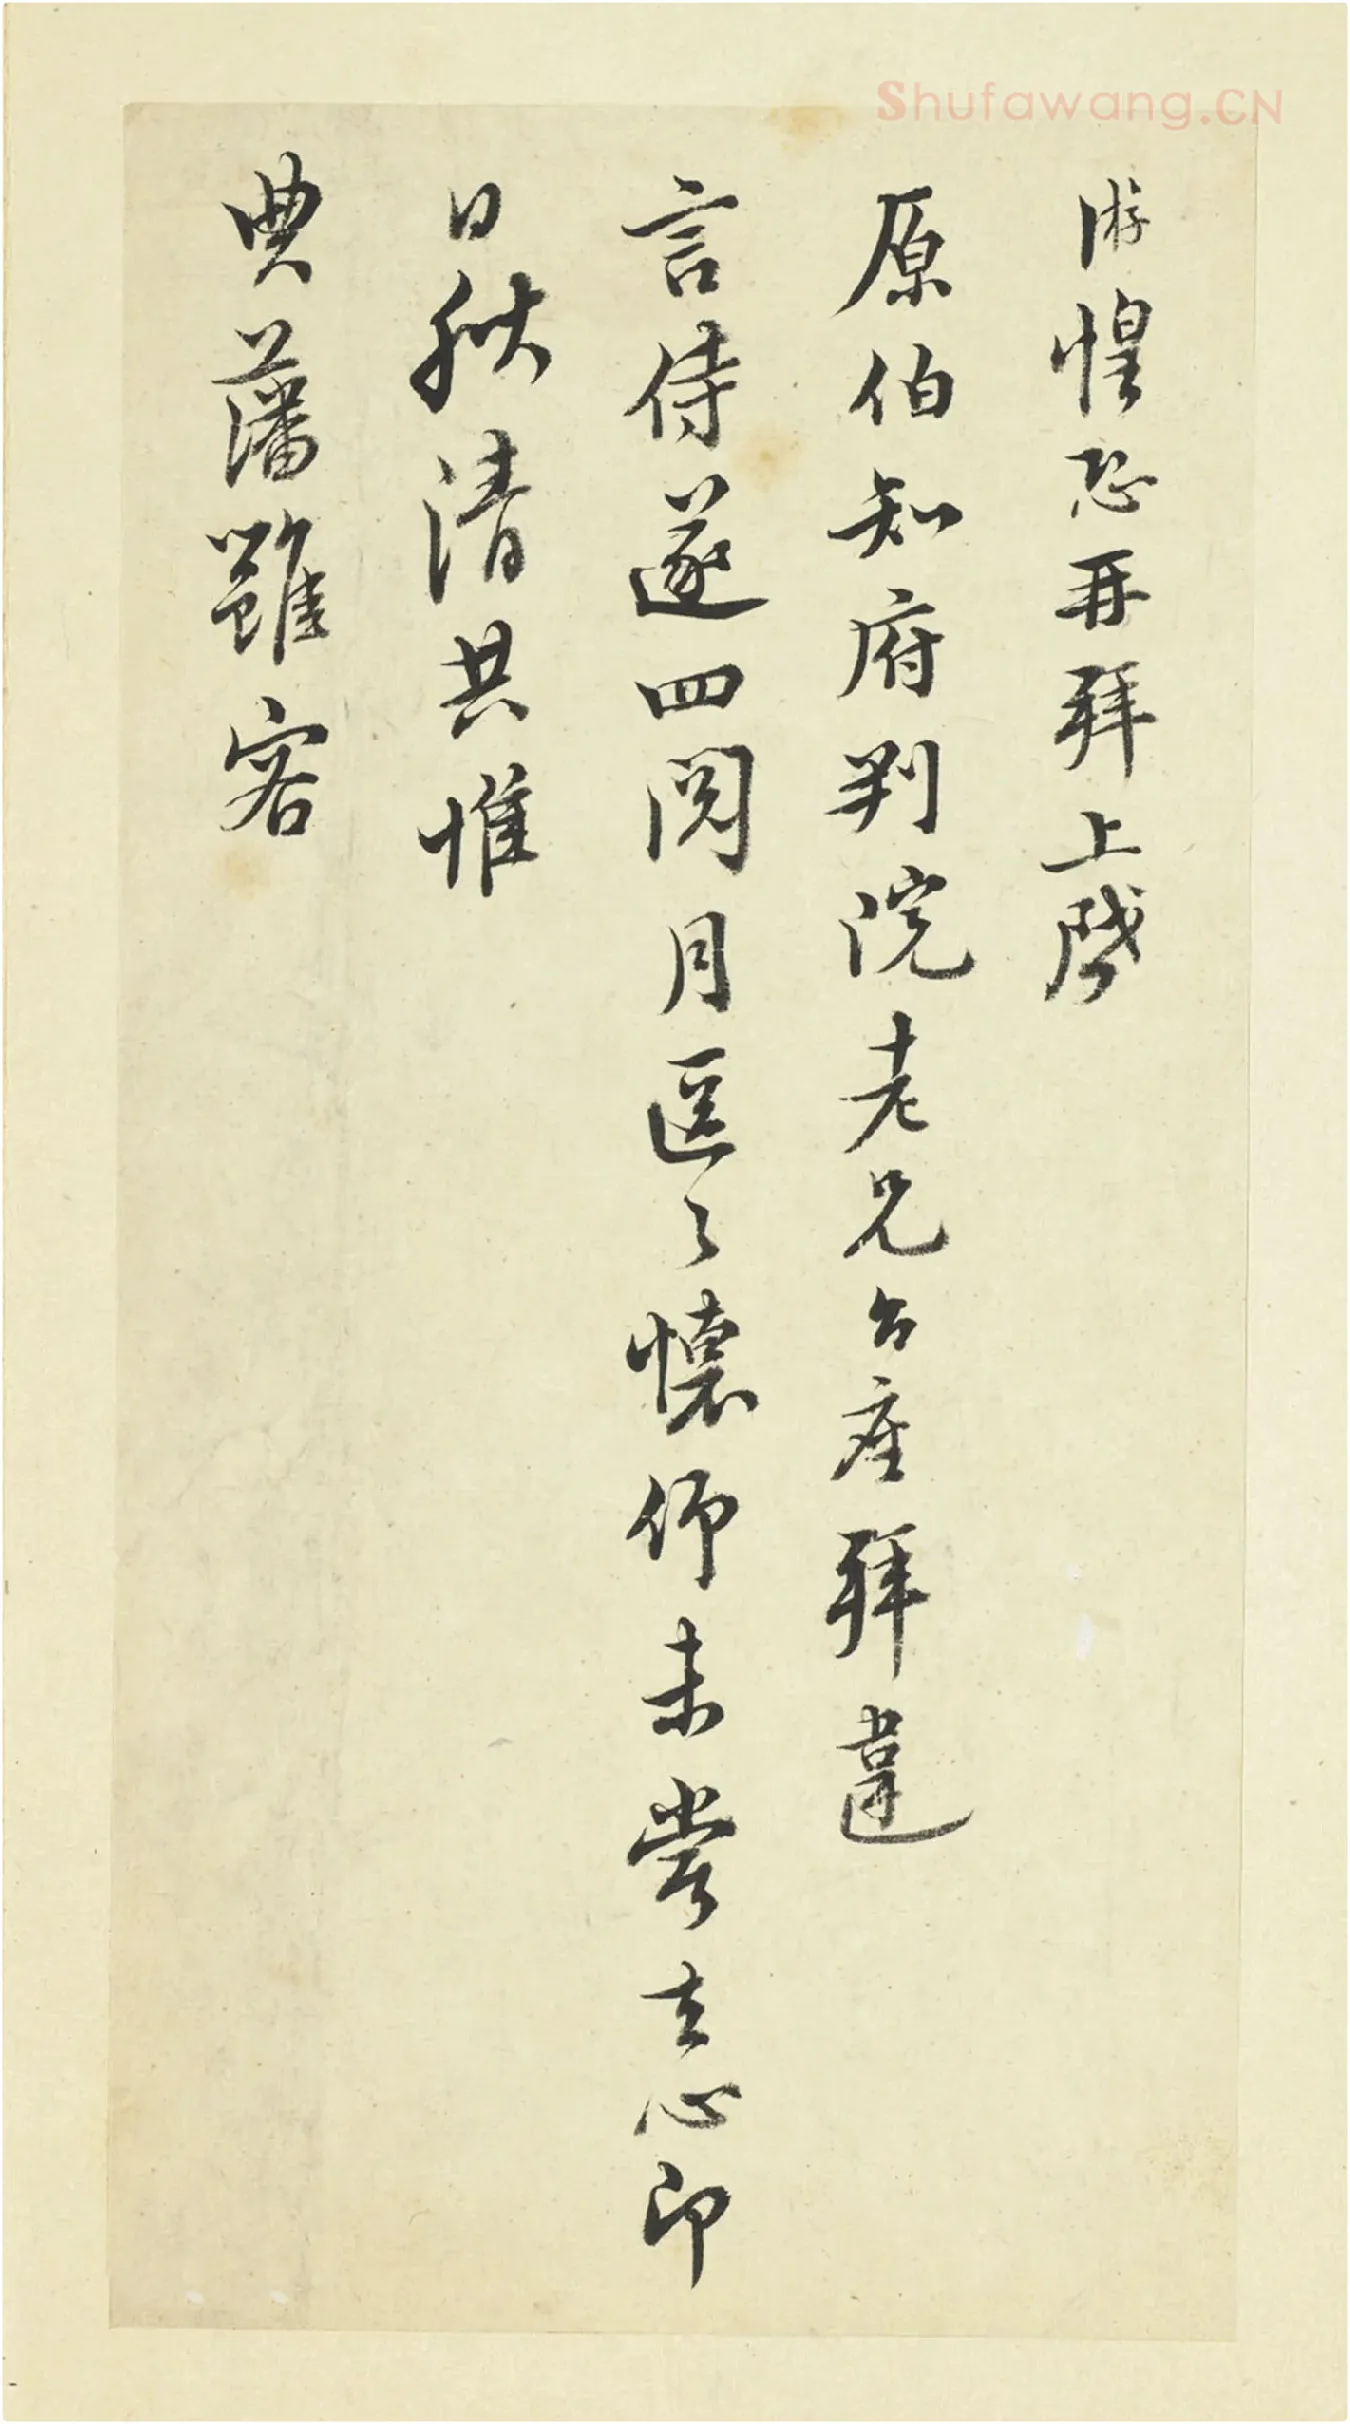 Shufawang.CN
游惶恐再拜上啓
原伯知府判院老兄台座拜違
言侍遂四閱月區々懷仰未嘗去心即
日秋清共惟
典藩雖容